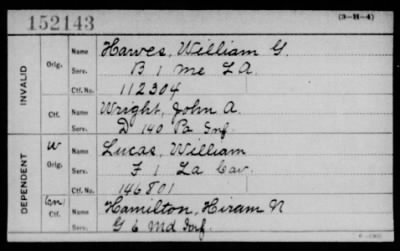 152143
(3-H-4)
INVALID
Orig.
Name Hawes, William G.
Serv. B 1 Me L A.
Ctf. No. 112304
Ctf.
Name Wright, John A.
Serv. D 140 Pa Inf.
DEPENDENT
W
Orig.
Name Lucas, William
Serv. F 1 La Cav.
Ctf. No. 146801
Ctf.
Name Hamilton, Hiram N
Serv. G 6 Md Inf.